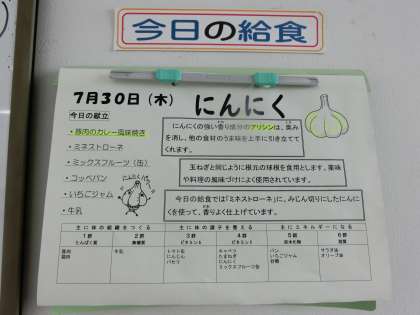 今日の給食
7月30日（木） にんにく
今日の献立
・豚肉のカレー風味焼き
・ミネストローネ
・ミックスフルーツ（缶）
・コッペパン
・いちごジャム
・牛乳
にんにくの強い香り成分のアリシンは、臭み
を消し、他の食材のうま味を上手に引き立てて
くれます。
玉ねぎと同じように根元の球根を食用とします。薬味
や料理の風味づけによく使用されています。
今日の給食では「ミネストローネ」に、みじん切りにしたにんに
くを使って、香りよく仕上げています。
主に体の組織をつくる 主に体の調子を整える 主にエネルギーになる
1群 2群 3群 4群 5群 6群
たんぱく質 無機質 ビタミンA ビタミンC 炭水化物 脂質
豚肉 牛乳 トマト缶 キャベツ パン サラダ油
鶏肉 にんじん たまねぎ いちごジャム オリーブ油
パセリ にんにく 砂糖
ミックスフルーツ缶